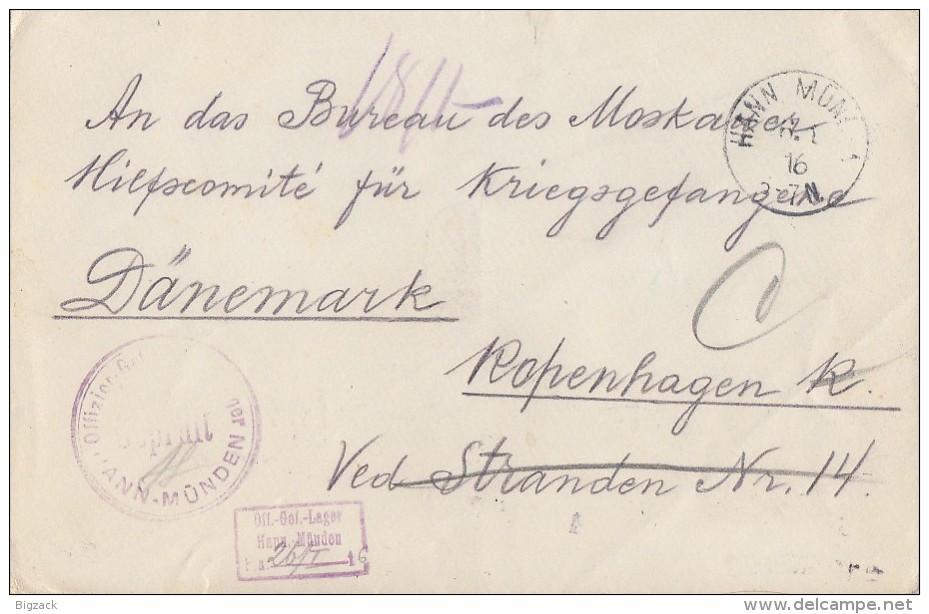 18/I
An das Bureau des Moskauer
Hilfscomité für Kriegsgefangene
Dänemark
Kopenhagen K.
Ved Stranden Nr. 14.
HANN MÜN
16
3-7N.
Offizier-Gef
Geprüft
HANN-MÜNDEN
Off.-Gef.-Lager
Hann.-Münden
26/I 16
Bigzack
www.delcampe.net